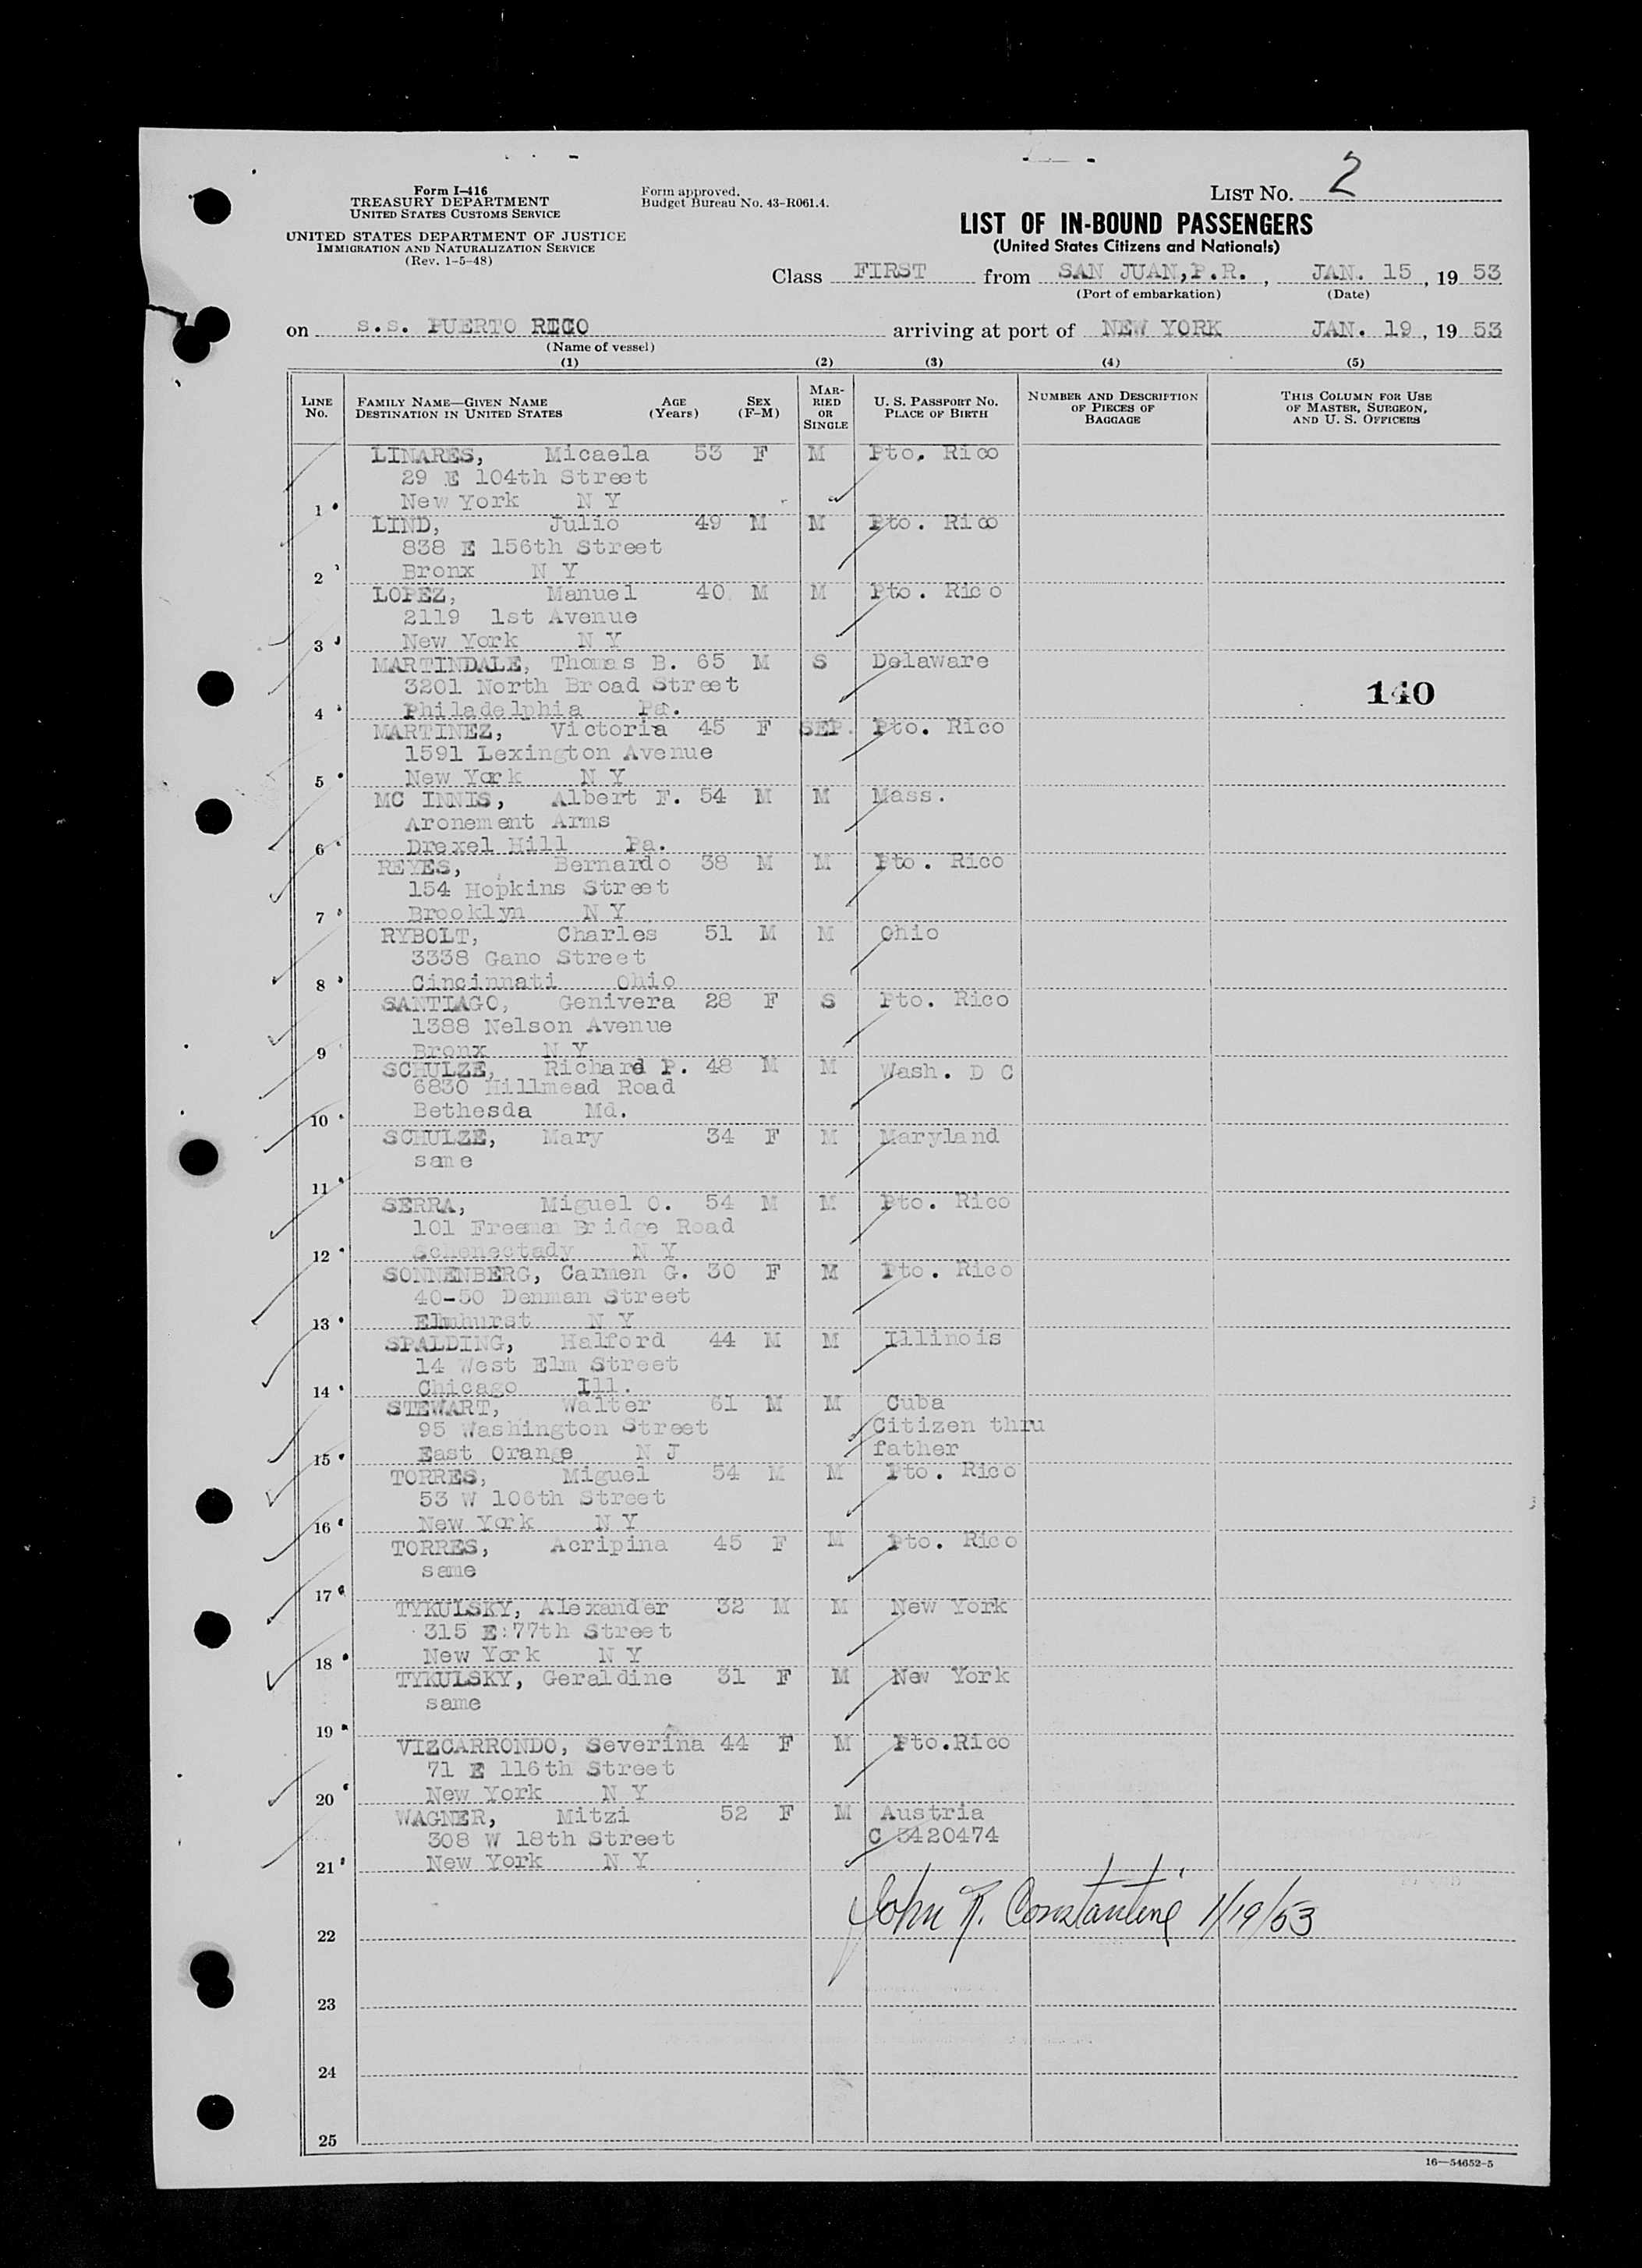 Form I-416
TREASURY DEPARTMENT
UNITED STATES CUSTOMS SERVICE
UNITED STATES DEPARTMENT OF JUSTICE
IMMIGRATION AND NATURALIZATION SERVICE
(Rev. 1-5-48)
Form approved.
Budget Bureau No. 43-R061.4.
LIST No. 2
LIST OF IN-BOUND PASSENGERS
(United States Citizens and Nationals)
Class FIRST from SAN JUAN, P.R., JAN. 15, 19 53
(Port of embarkation) (Date)
on S.S. PUERTO RICO arriving at port of NEW YORK JAN. 19, 19 53
(Name of vessel)
(1) (2) (3) (4) (5)
LINE No.
FAMILY NAME—GIVEN NAME DESTINATION IN UNITED STATES
AGE (Years)
SEX (F-M)
MARRIED OR SINGLE
U. S. PASSPORT No. PLACE OF BIRTH
NUMBER AND DESCRIPTION OF PIECES OF BAGGAGE
THIS COLUMN FOR USE OF MASTER, SURGEON, AND U. S. OFFICERS
LINARES, Micaela 53 F M Pto. Rico
29 E 104th Street
1 New York N Y
LIND, Julio 49 M M Pto. Rico
838 E 156th Street
2 Bronx N Y
LOPEZ, Manuel 40 M M Pto. Rico
2119 1st Avenue
3 New York N Y
MARTINDALE, Thomas B. 65 M S Delaware
3201 North Broad Street
140
4 Philadelphia Pa.
MARTINEZ, Victoria 45 F SEP. Pto. Rico
1591 Lexington Avenue
5 New York N Y
MC INNIS, Albert F. 54 M M Mass.
Aronement Arms
6 Drexel Hill Pa.
REYES, Bernardo 38 M M Pto. Rico
154 Hopkins Street
7 Brooklyn N Y
RYBOLT, Charles 51 M M Ohio
3338 Gano Street
8 Cincinnati Ohio
SANTIAGO, Genivera 28 F S Pto. Rico
1388 Nelson Avenue
9 Bronx N Y
SCHULZE, Richard P. 48 M M Wash. D C
6830 Hillmead Road
10 Bethesda Md.
SCHULZE, Mary 34 F M Maryland
same
11
SERRA, Miguel O. 54 M M Pto. Rico
101 Freeman Bridge Road
12 Schenectady N Y
SONNENBERG, Carmen G. 30 F M Pto. Rico
40-50 Denman Street
13 Elmhurst N Y
SPALDING, Halford 44 M M Illinois
14 West Elm Street
14 Chicago Ill.
STEWART, Walter 61 M M Cuba
95 Washington Street Citizen thru
15 East Orange N J father
TORRES, Miguel 54 M M Pto. Rico
53 W 106th Street
16 New York N Y
TORRES, Acripina 45 F M Pto. Rico
same
17
TYKULSKY, Alexander 32 M M New York
315 E:77th Street
18 New York N Y
TYKULSKY, Geraldine 31 F M New York
same
19
VIZCARRONDO, Severina 44 F M Pto.Rico
71 E 116th Street
20 New York N Y
WAGNER, Mitzi 52 F M Austria
308 W 18th Street C 3420474
21 New York N Y
John R. Constantine 1/19/53
22
23
24
25
16—54652-5